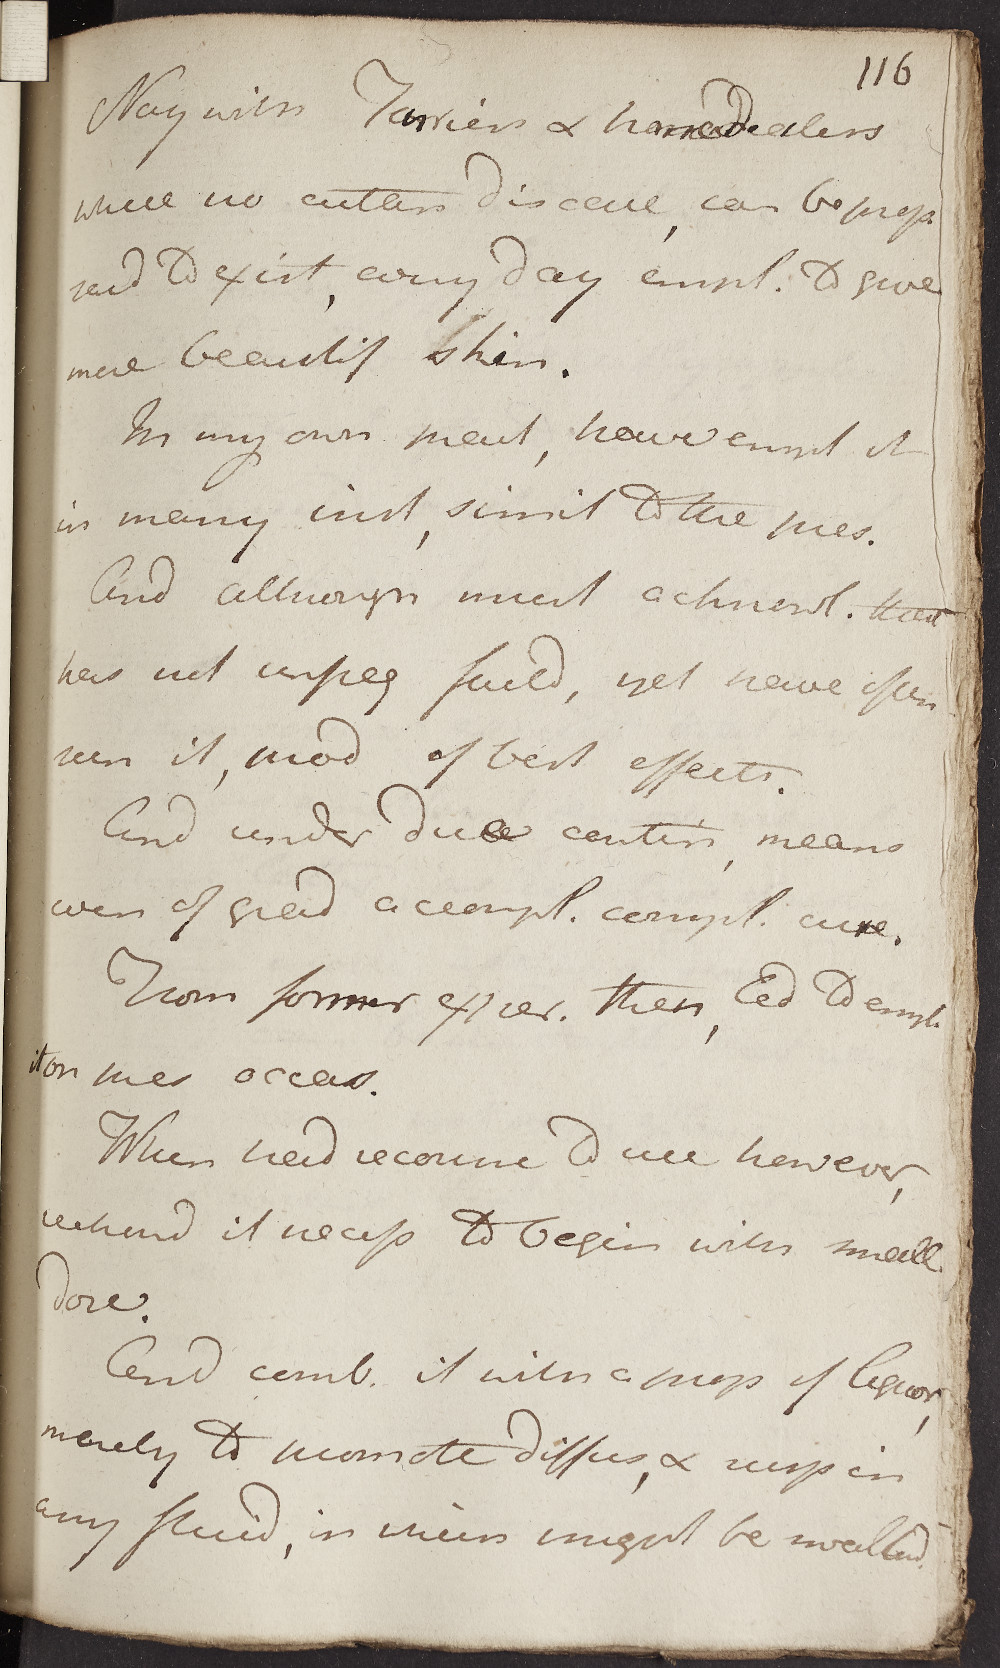 116
Nay with Farriers & horse dealers
where no cutan disease, can be prop
said to exist, every day empl. to give
mere beautif skin.
In my own pract, have empl it
in many inst, simil to the pres.
And although must acknowl. that
has not unfreq faild, yet have often
seen it, prod of best effects.
And under due contin, means
even of grad accompl. compl. cure.
From former exper. then, led to empl.
it on pres occas.
When had recourse to use however,
reckond it necess to begin with small
dose.
And comb. it with a prep of liquor,
merely to promote diffus, & susp in
any fluid, in which might be swallowd.